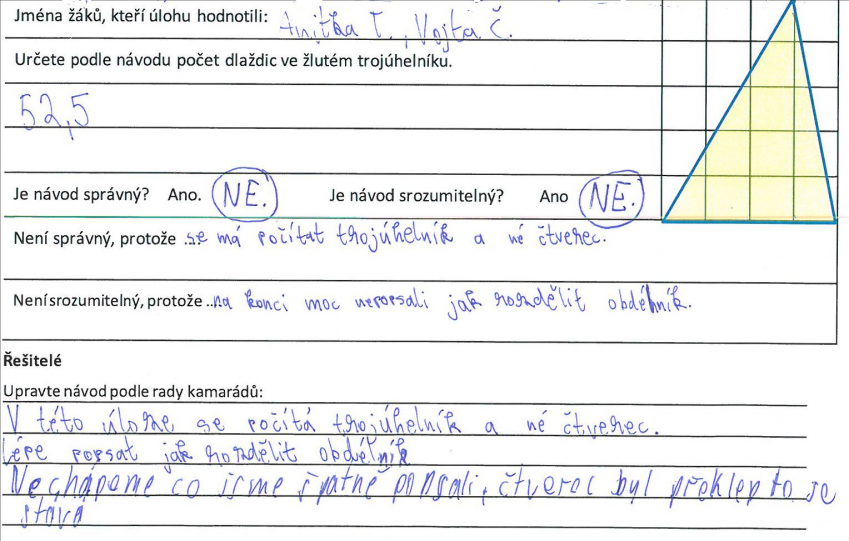 Jména žáků, kteří úlohu hodnotili: Anitka T., Vojta Č.
Určete podle návodu počet dlaždic ve žlutém trojúhelníku.
52,5
Je návod správný? Ano. NE. Je návod srozumitelný? Ano NE.
Není správný, protože ... se má počítat trojúhelník a né čtverec.
Není srozumitelný, protože ... na konci moc nepopsali jak rozdělit obdélník.
Řešitelé
Upravte návod podle rady kamarádů:
V této úloze se počítá trojúhelník a né čtverec.
Lépe popsat jak rozdělit obdélník
Nechápeme co jsme špatně popsali, čtverec byl překlep to se
stává